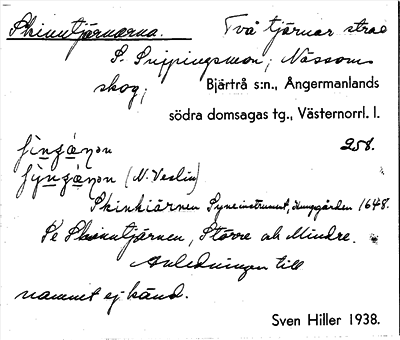 Skinntjärnarna. Två tjärnar strax
S. Snippingsmon, Nässoms
skog; Bjärtrå s:n., Ångermanlands
södra domsagas tg., Västernorrl. l.
258.
(N. Veslin)
Skinkiärnen Syneinstrument, Kunggården 1648.
Se Skinntjärnen, Större och Mindre.
Anledningen till
namnet ej känd.
Sven Hiller 1938.